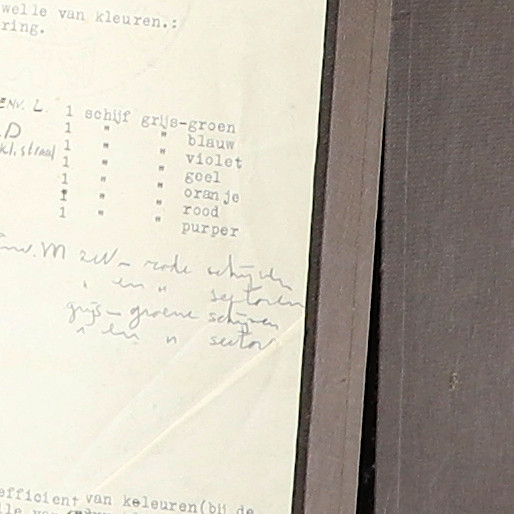 welle van kleuren.:
ring.
ENV. L. 1 schijf grijs-groen
D 1 " " blauw
kl. straal 1 " " violet
1 " " geel
1 " " oranje
1 " " rood
1 " " purper
env. M zw - rode schijven
" en " sectoren
grijs - groene schijven
" en " sector
efficient van keleuren(bij de